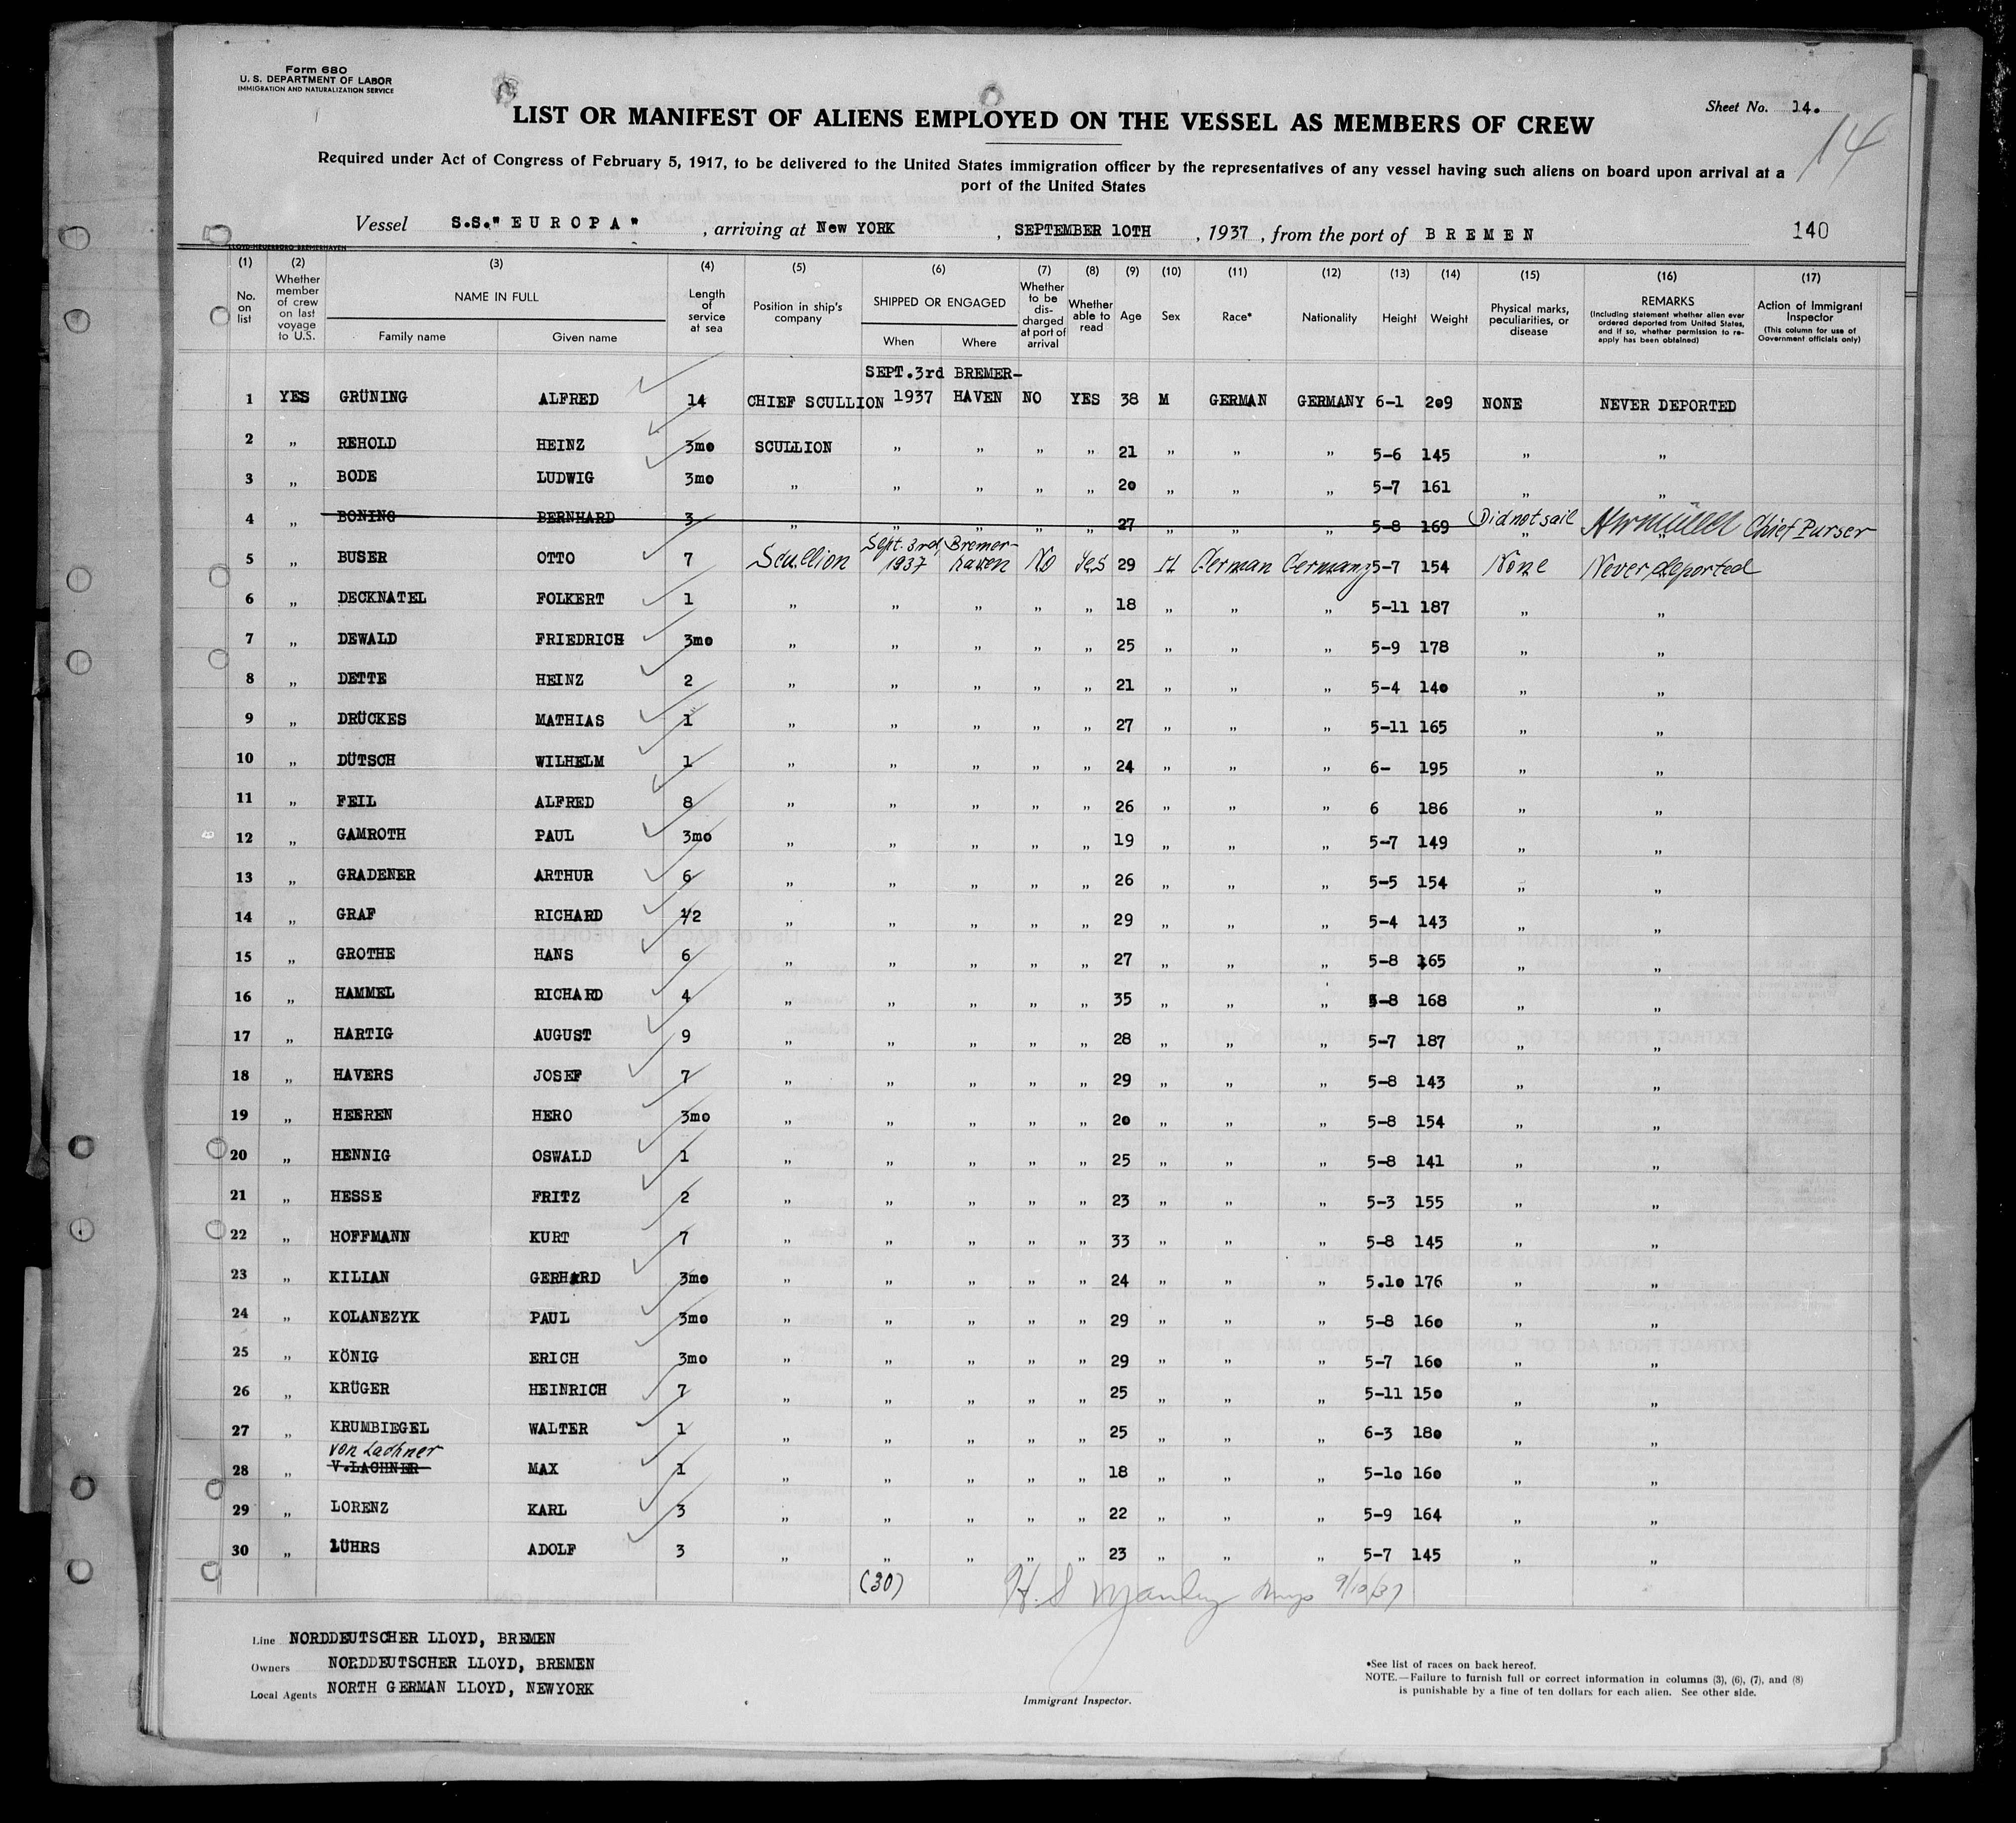 Form 680
U. S. DEPARTMENT OF LABOR
IMMIGRATION AND NATURALIZATION SERVICE
Sheet No. 14.
14
LIST OR MANIFEST OF ALIENS EMPLOYED ON THE VESSEL AS MEMBERS OF CREW
Required under Act of Congress of February 5, 1917, to be delivered to the United States immigration officer by the representatives of any vessel having such aliens on board upon arrival at a
port of the United States
Vessel S.S." E U R O P A " , arriving at New YORK , SEPTEMBER 10TH , 1937 , from the port of B R E M E N 140
(1) (2) (3) (4) (5) (6) (7) (8) (9) (10) (11) (12) (13) (14) (15) (16) (17)
No. on list Whether member of crew on last voyage to U.S. NAME IN FULL Family name Given name Length of service at sea Position in ship's company SHIPPED OR ENGAGED When Where Whether to be discharged at port of arrival Whether able to read Age Sex Race* Nationality Height Weight Physical marks, peculiarities, or disease REMARKS (Including statement whether alien ever ordered deported from United States, and if so, whether permission to reapply has been obtained) Action of Immigrant Inspector (This column for use of Government officials only)
SEPT.3rd BREMER-
1 YES GRÜNING ALFRED 14 CHIEF SCULLION 1937 HAVEN NO YES 38 M GERMAN GERMANY 6-1 209 NONE NEVER DEPORTED
2 " REHOLD HEINZ 3mo SCULLION " " " " 21 " " " 5-6 145 " "
3 " BODE LUDWIG 3mo " " " " " 20 " " " 5-7 161 " "
4 " BONING BERNHARD 3 " " " " " 27 " " " 5-8 169 " Did not sail " Chief Purser
5 " BUSER OTTO 7 Scullion Sept. 3rd, 1937 Bremer-haven No Yes 29 M German Germany 5-7 154 None Never deported
6 " DECKNATEL FOLKERT 1 " " " " " 18 " " " 5-11 187 " "
7 " DEWALD FRIEDRICH 3mo " " " " " 25 " " " 5-9 178 " "
8 " DETTE HEINZ 2 " " " " " 21 " " " 5-4 140 " "
9 " DRÜCKES MATHIAS 1 " " " " " 27 " " " 5-11 165 " "
10 " DÜTSCH WILHELM 1 " " " " " 24 " " " 6- 195 " "
11 " FEIL ALFRED 8 " " " " " 26 " " " 6 186 " "
12 " GAMROTH PAUL 3mo " " " " " 19 " " " 5-7 149 " "
13 " GRADENER ARTHUR 6 " " " " " 26 " " " 5-5 154 " "
14 " GRAF RICHARD 1/2 " " " " " 29 " " " 5-4 143 " "
15 " GROTHE HANS 6 " " " " " 27 " " " 5-8 165 " "
16 " HAMMEL RICHARD 4 " " " " " 35 " " " 5-8 168 " "
17 " HARTIG AUGUST 9 " " " " " 28 " " " 5-7 187 " "
18 " HAVERS JOSEF 7 " " " " " 29 " " " 5-8 143 " "
19 " HEEREN HERO 3mo " " " " " 20 " " " 5-8 154 " "
20 " HENNIG OSWALD 1 " " " " " 25 " " " 5-8 141 " "
21 " HESSE FRITZ 2 " " " " " 23 " " " 5-3 155 " "
22 " HOFFMANN KURT 7 " " " " " 33 " " " 5-8 145 " "
23 " KILIAN GERHARD 3mo " " " " " 24 " " " 5.10 176 " "
24 " KOLANEZYK PAUL 3mo " " " " " 29 " " " 5-8 160 " "
25 " KÖNIG ERICH 3mo " " " " " 29 " " " 5-7 160 " "
26 " KRÜGER HEINRICH 7 " " " " " 25 " " " 5-11 150 " "
27 " KRUMBIEGEL WALTER 1 " " " " " 25 " " " 6-3 180 " "
von Lachner
28 " V.LACHNER MAX 1 " " " " " 18 " " " 5-10 160 " "
29 " LORENZ KARL 3 " " " " " 22 " " " 5-9 164 " "
30 " LÜHRS ADOLF 3 " " " " " 23 " " " 5-7 145 " "
(30) H. S Manley 9/10/37
Line NORDDEUTSCHER LLOYD, BREMEN
Owners NORDDEUTSCHER LLOYD, BREMEN
Local Agents NORTH GERMAN LLOYD, NEWYORK
Immigrant Inspector.
*See list of races on back hereof.
NOTE.—Failure to furnish full or correct information in columns (3), (6), (7), and (8)
is punishable by a fine of ten dollars for each alien. See other side.